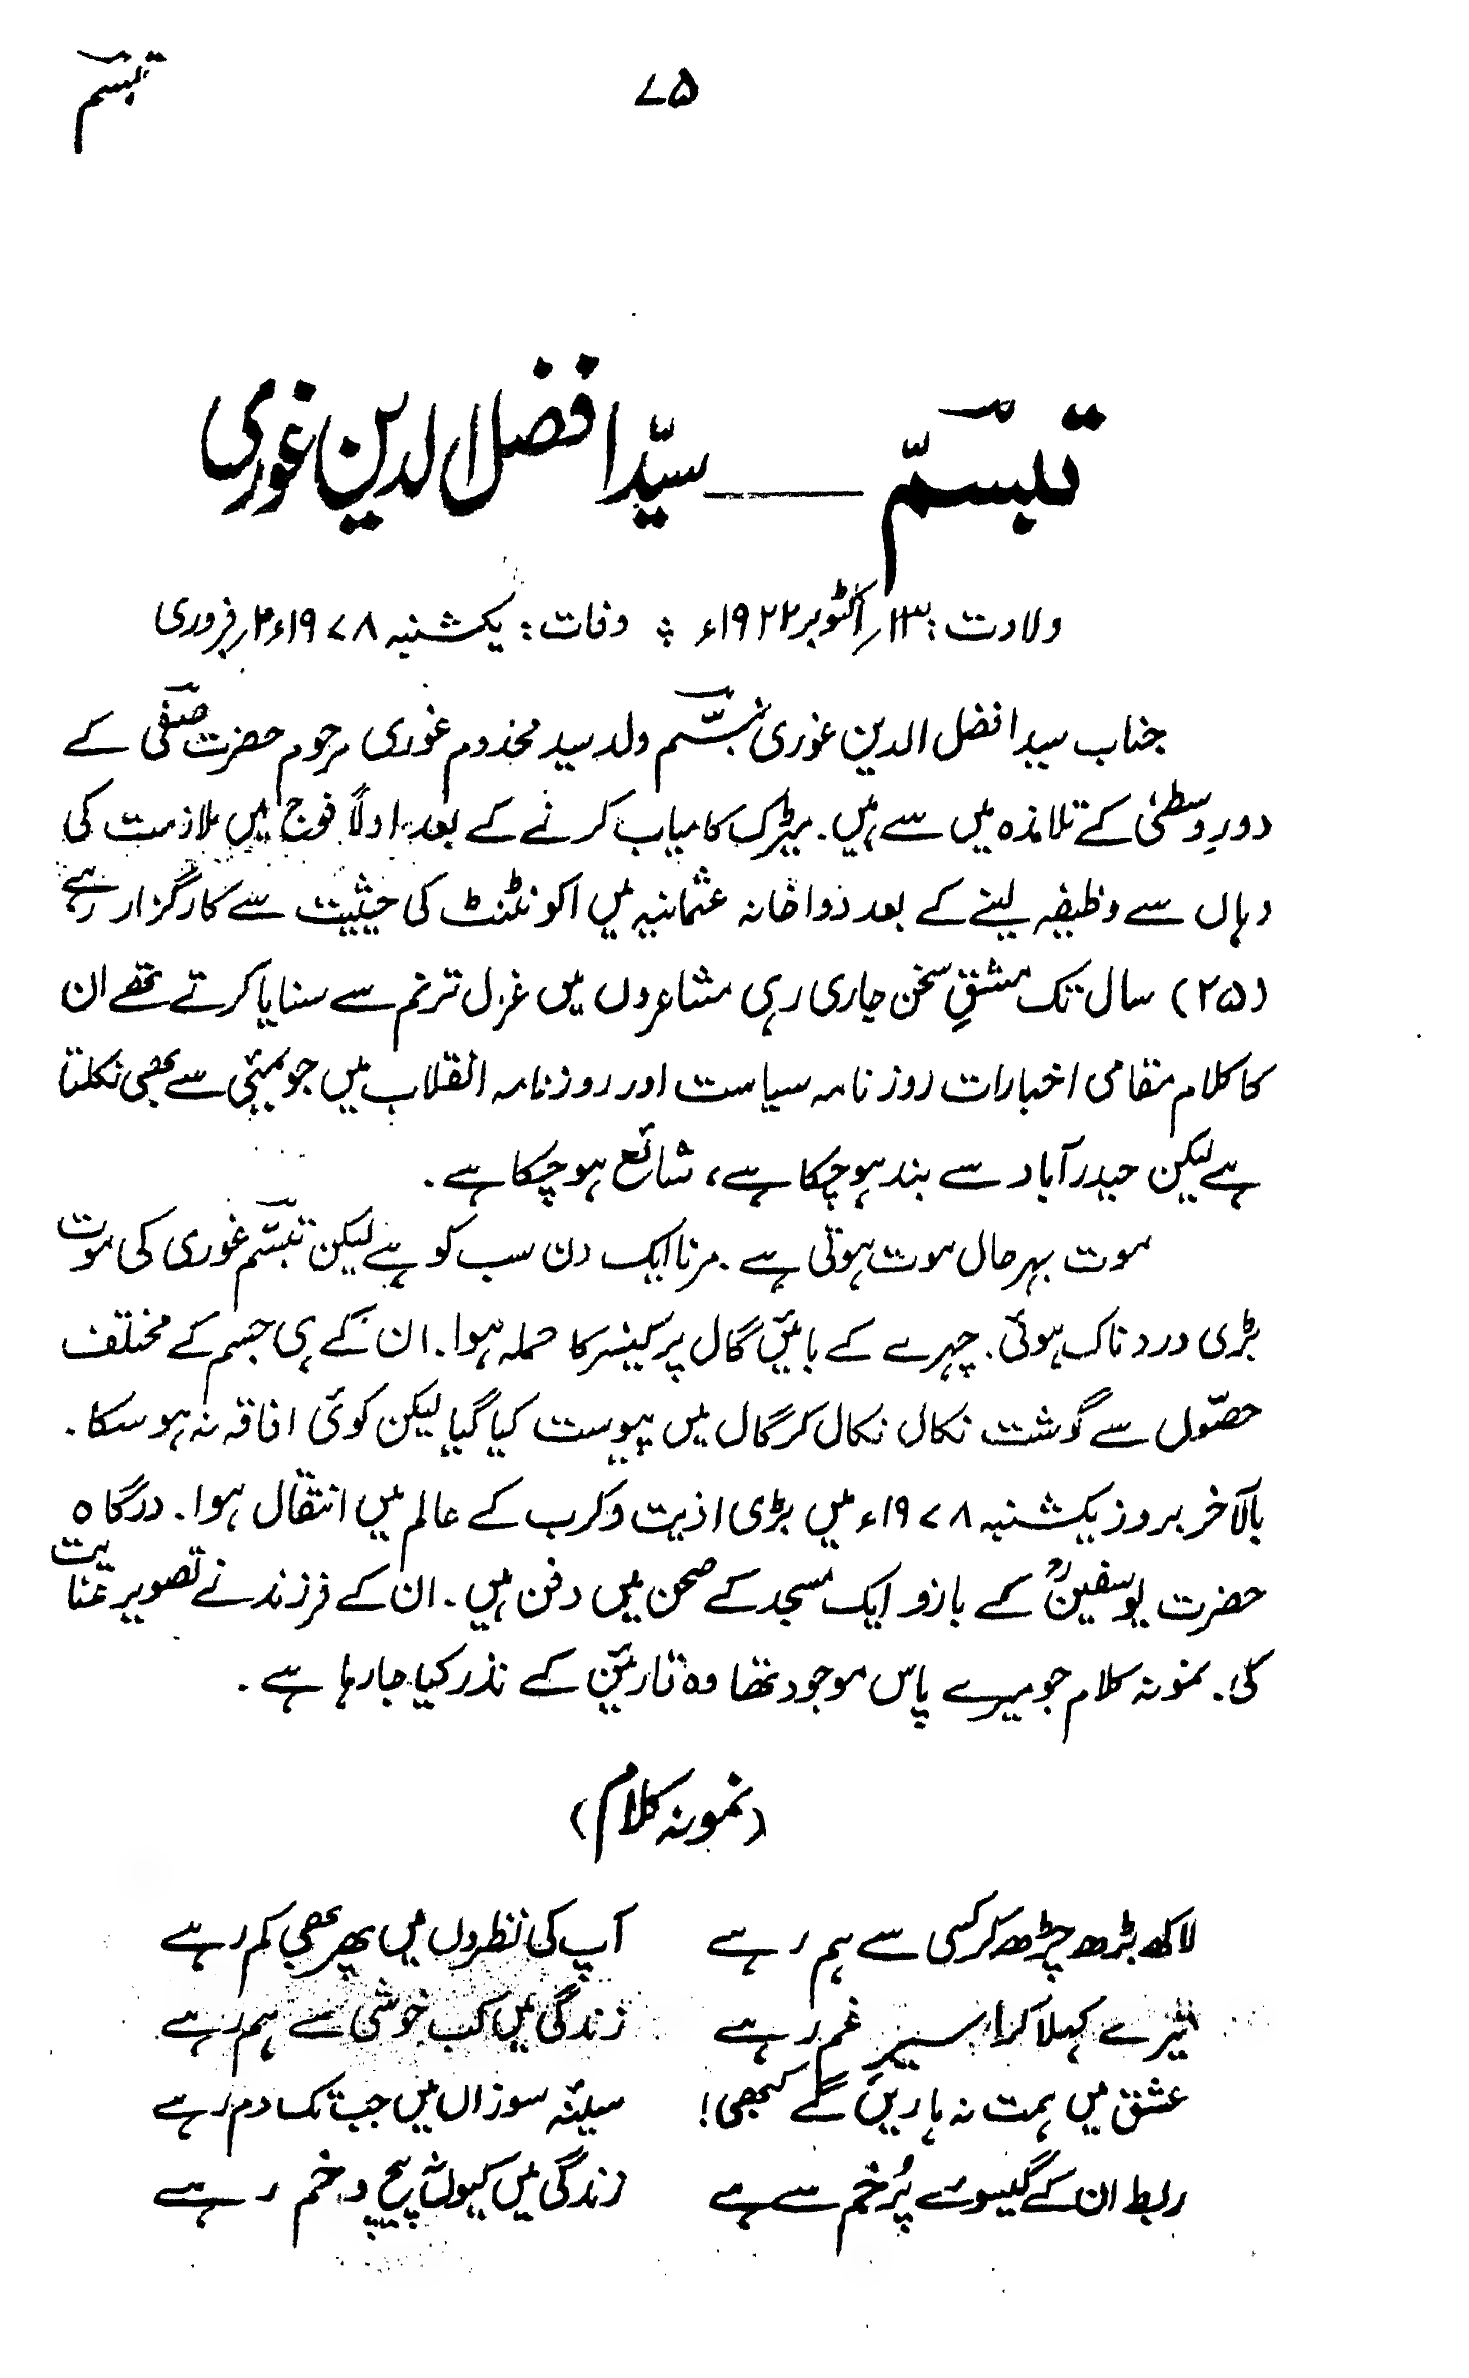 ۷۵
تبسم
تبسّم ــــ سیّد افضل الدین غوری
ولادت: ۱۳؍اکٹوبر ۱۹۲۲ء ؞ وفات: یکشنبہ ۱۹۷۸ء ۲؍فروری
جناب سید افضل الدین غوری تبسّم ولد سید مخدوم غوری مرحوم حضرت صفی کے
دورِ وسطیٰ کے تلامذہ میں سے ہیں۔ میٹرک کامیاب کرنے کے بعد اولاً فوج میں ملازمت کی
وہاں سے وظیفہ لینے کے بعد دواخانہ عثمانیہ میں اکونٹنٹ کی حیثیت سے کارگزار رہے
(۲۵) سال تک مشقِ سخن جاری رہی مشاعروں میں غزل ترنم سے سنایا کرتے تھے ان
کا کلام مقامی اخبارات روزنامہ سیاست اور روزنامہ انقلاب میں جو بمبئی سے بھی نکلتا
ہے لیکن حیدرآباد سے بند ہو چکا ہے، شائع ہو چکا ہے۔
موت بہر حال موت ہوتی ہے۔ مرنا ایک دن سب کو ہے لیکن تبسّم غوری کی موت
بڑی دردناک ہوئی۔ چہرے کے بائیں گال پر کینسر کا حملہ ہوا۔ ان کے ہی جسم کے مختلف
حصّوں سے گوشت نکال نکال کر گال میں پیوست کیا گیا لیکن کوئی افاقہ نہ ہو سکا۔
بالآخر بروز یکشنبہ ۱۹۷۸ء میں بڑی اذیت و کرب کے عالم میں انتقال ہوا۔ درگاہ
حضرت یوسفینؒ کے بازو ایک مسجد کے صحن میں دفن ہیں۔ ان کے فرزند نے تصویر عنایت
کی۔ نمونہ کلام جو میرے پاس موجود تھا وہ قارئین کے نذر کیا جا رہا ہے۔
(نمونہ کلام)
لاکھ بڑھ چڑھ کر کسی سے ہم رہے آپ کی نظروں میں پھر بھی کم رہے
تیرے کہلا کر اسیرِ غم رہے زندگی میں کب خوشی سے ہم رہے
عشق میں ہمت نہ ہاریں گے کبھی! سینۂ سوزاں میں جب تک دم رہے
ربط ان کے گیسوئے پُرخم سے ہے زندگی میں کیوں نہ پیچ و خم رہے